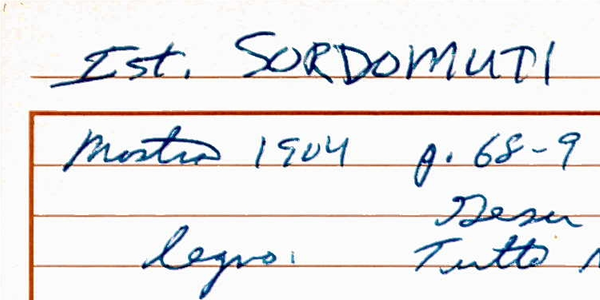 Ist. SORDOMUTI
Mostra 1904 p. 68-9
Gesu
legno. Tutto